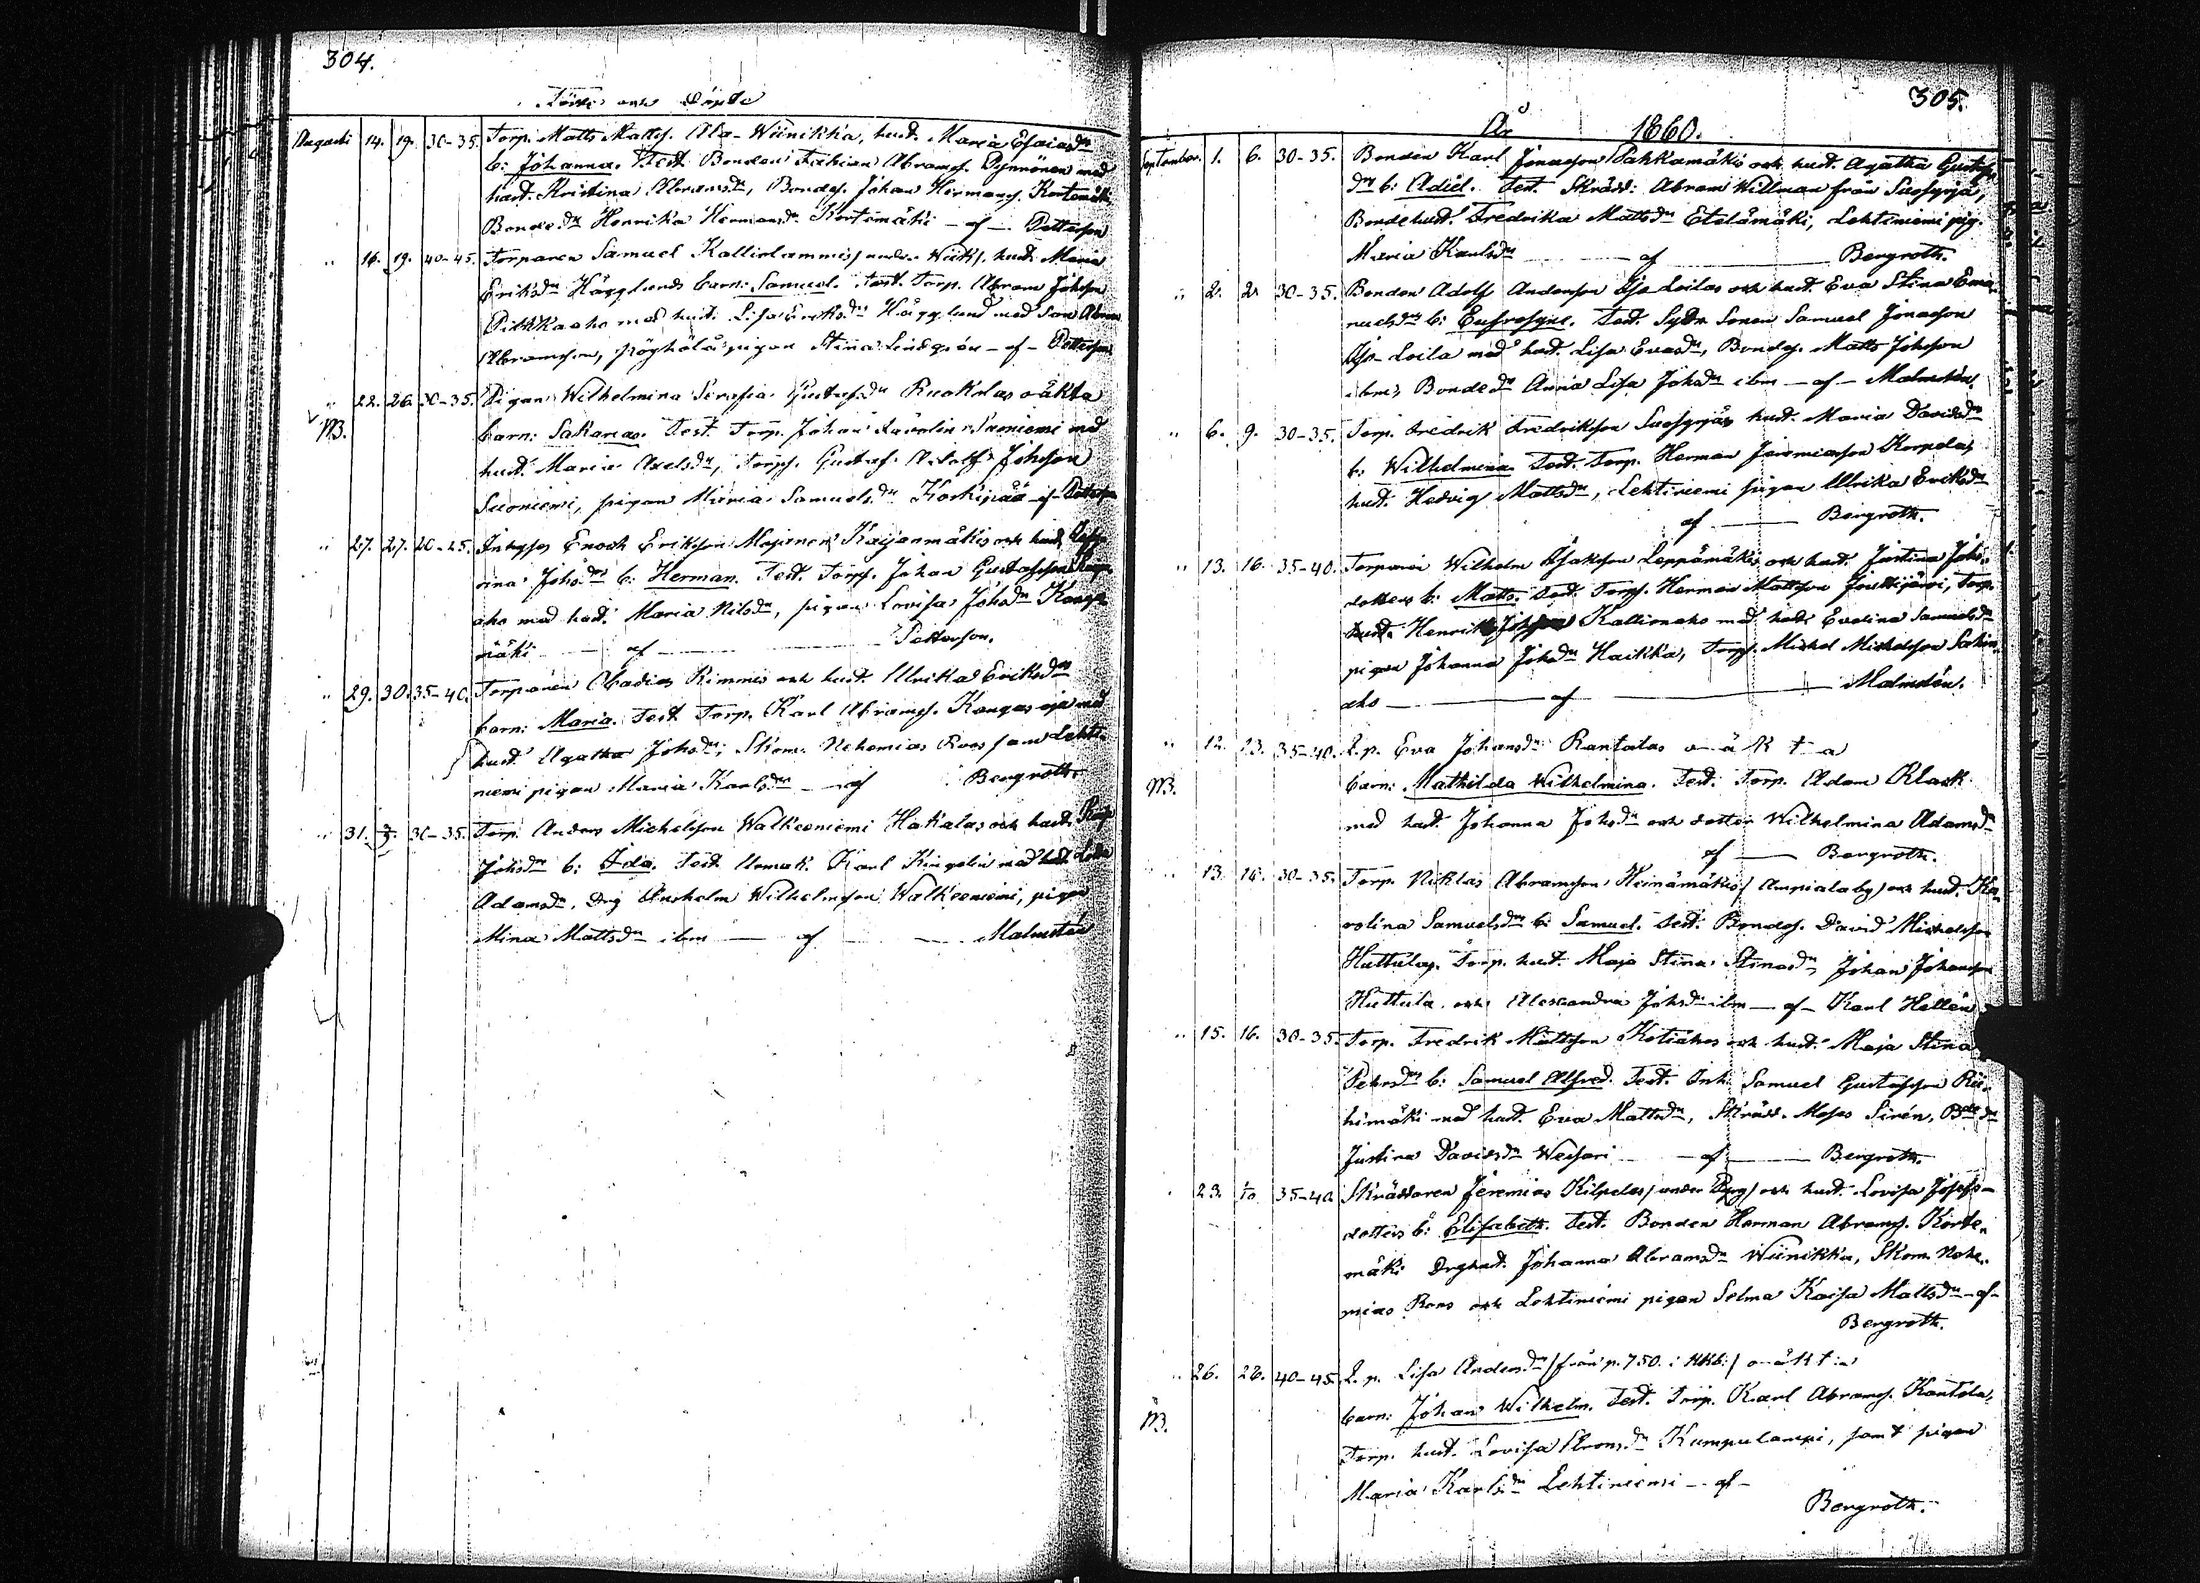 304.
Födde och Döpte
Augusti 14. 19. 30-35. Torp. Matts Matts. Ala-Wiinikka, hust. Maria Esaiasdr
b: Johanna. Test. Bonden Fabian Abrams. Pynnönen med
hust. Kristina Abramsdr, Bondes. Johan Hermans. Kortemäki,
Bondedr Henrika Hermansdr Kortemäki - af - Petterson
" 16. 19. 40-45. Torparen Samuel Kalliolammis / under Wiik /, hust. Maria
Eriksdr Hägglunds barn: Samuel. Test. Torp. Abram Johsson
Pitkkaaho med hust. Lisa Eriksdr Hägglund med Son Abram
Abramsson, pigan Stina Lindgrén - af - Petterson
" 22. 26. 30-35. Pigan Wilhelmina Serafia Gustafsdr Ruokolas oäkta
NB. barn: Sakarias. Test. Torp. Johan Suoniemi med
hust. Maria Axelsdr, Torps. Gustaf Adolf Johsson
Suoniemi, pigan Maria Samuelsdr Koskipää - af - Petterson
" 27. 27. 20-25. Inhyses Enoch Eriksson Kaijanmäkis och hust.
rina Johsdrs b: Herman. Test. Torps. Johan Gustafsson
aho med hust. Maria Nilsdr, pigan Lovisa Johsdr Kangas
mäki - af - Petterson.
" 29. 30. 35-40. Torparen Abadias Rimmis och hust. Ulrika Eriksdrs
barn: Maria. Test. Torp. Karl Abrams. Kangasoja med
hust. Agatha Johsdr, Skom. Nehemias Roos samt Lehti-
niemi pigan Maria Karlsdr - af Bergroth.
" 31. 30-35. Torp. Anders Michelsson Walkeeniemi Hakalas och hust.
Johsdrs b: Ida. Test. Karl Kingelin med hust.
Adamsdr, Drg Anshelm Wilhelmsson Walkeeniemi, pigan
Mina Mattsdr ibm - af - Malmstén
305.
År 1860.
September. 1. 6. 30-35. Bonden Karl Jonasson Pahkamäkis och hust. Agatha Gustafs
drs b: Adiel. Test. Skrädd: Abram Willman från Suosyrjä,
Bondehust. Fredrika Mattsdr Etelämäki, Lehtiniemi pig.
Maria Karlsdr - af - Bergroth.
" 2. 2. 30-35. Bonden Adolf Andersson Iso-Loilas och hust. Eva Stina Ema-
nuelsdrs b: Eufrosyne. Test. Sydn. Sonen Samuel Jonasson
Iso-Loila med hust. Lisa Evasdr, Bondes. Matts Johsson
ibm, Bondedr Anna Lisa Johsdr ibm - af - Malmstén
" 6. 9. 30-35. Torp. Fredrik Fredriksson Suosyrjäs hust. Maria Davidsdrs
b: Wilhelmina. Test. Torp. Herman Jeremiasson Korpela,
hust. Hedvig Mattsdr, Lehtiniemi pigan Ulrika Eriksdr
af - Bergroth.
" 13. 16. 35-40. Torparen Wilhelm Isaksson Leppämäkis och hust. Justina Johs-
dotters b: Matts. Test. Torps. Herman Mattsson Jouttijärvi, Torp.
Henrik Kallioneho med hust. Evelina Samuelsdr
pigan Johanna Johsdr Haikka, Torps. Michel Michelsson
aho - af - Malmstén.
" 12. 23. 35-40. L. p. Eva Johansdr Rantalas oäkta
NB. barn: Mathilda Wilhelmina. Test. Torp. Adam Klask
med hust. Johanna Johsdr och dotter Wilhelmina Adamsdr
af - Bergroth.
" 13. 16. 30-35. Torp. Niklas Abramsson Heinämäkis / Ampiala by / och hust. Ka-
rolina Samuelsdrs b: Samuel. Test. Bondes. David Michelsson
Huttula, Torp. hust. Maja Stina Stinasdr, Johan Johansson
Huttula och Alexandra Johsdr ibm - af - Karl Hellén
" 15. 16. 30-35. Torp. Fredrik Mattsson Kotiahos och hust. Maja Stina
Pehrsdrs b: Samuel Alfred. Test. Inh. Samuel Gustafsson Rii-
himäki med hust. Eva Mattsdr, Skrädd. Moses Sirén, Bdedr
Justina Davidsdr Weisari - af - Bergroth.
23. 35-40. Skräddaren Jeremias Kilpelas / under Byrg / och hust. Lovisa Josefs-
dotters b: Elisabeth. Test. Bonden Herman Abrams. Korte-
mäki Drghust. Johanna Abramsdr Wiinikka, Skom. Nehe-
mias Roos och Lehtiniemi pigan Selma Kaisa Mattsdr - af -
Bergroth.
" 26. 28. 40-45. L. p. Lisa Andersdr / från p. 750. i Kkb: / oäkta
NB. barn: Johan Wilhelm. Test. Torp. Karl Abrams. Kantola,
Torp. hust. Lovisa Kumpulampi, samt pigan
Maria Karlsdr Lehtiniemi - af -
Bergroth.